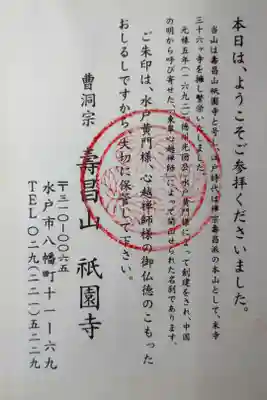 本日は、ようこそご参拝くださいました。
当山は壽昌山祇園寺と号し江戸時代は禅宗壽昌派の本山として、末寺
三十六ヶ寺を擁し繁栄いたしました
元禄五年(一六九二)徳川光圀公(水戸黄門様)によって創建をされ、中国
の明から呼び寄せた、東皐心越禅師によって開山せられた名刹であります。
ご朱印は、水戸黄門様、心越禅師様の御仏徳のこもった
おしるしですから、大切に保管して下さい。
曹洞宗 壽昌山 祇園寺
〒三一〇-〇〇六五
水戸市八幡町十一-六九
TEL〇二九(二二一)五二二九